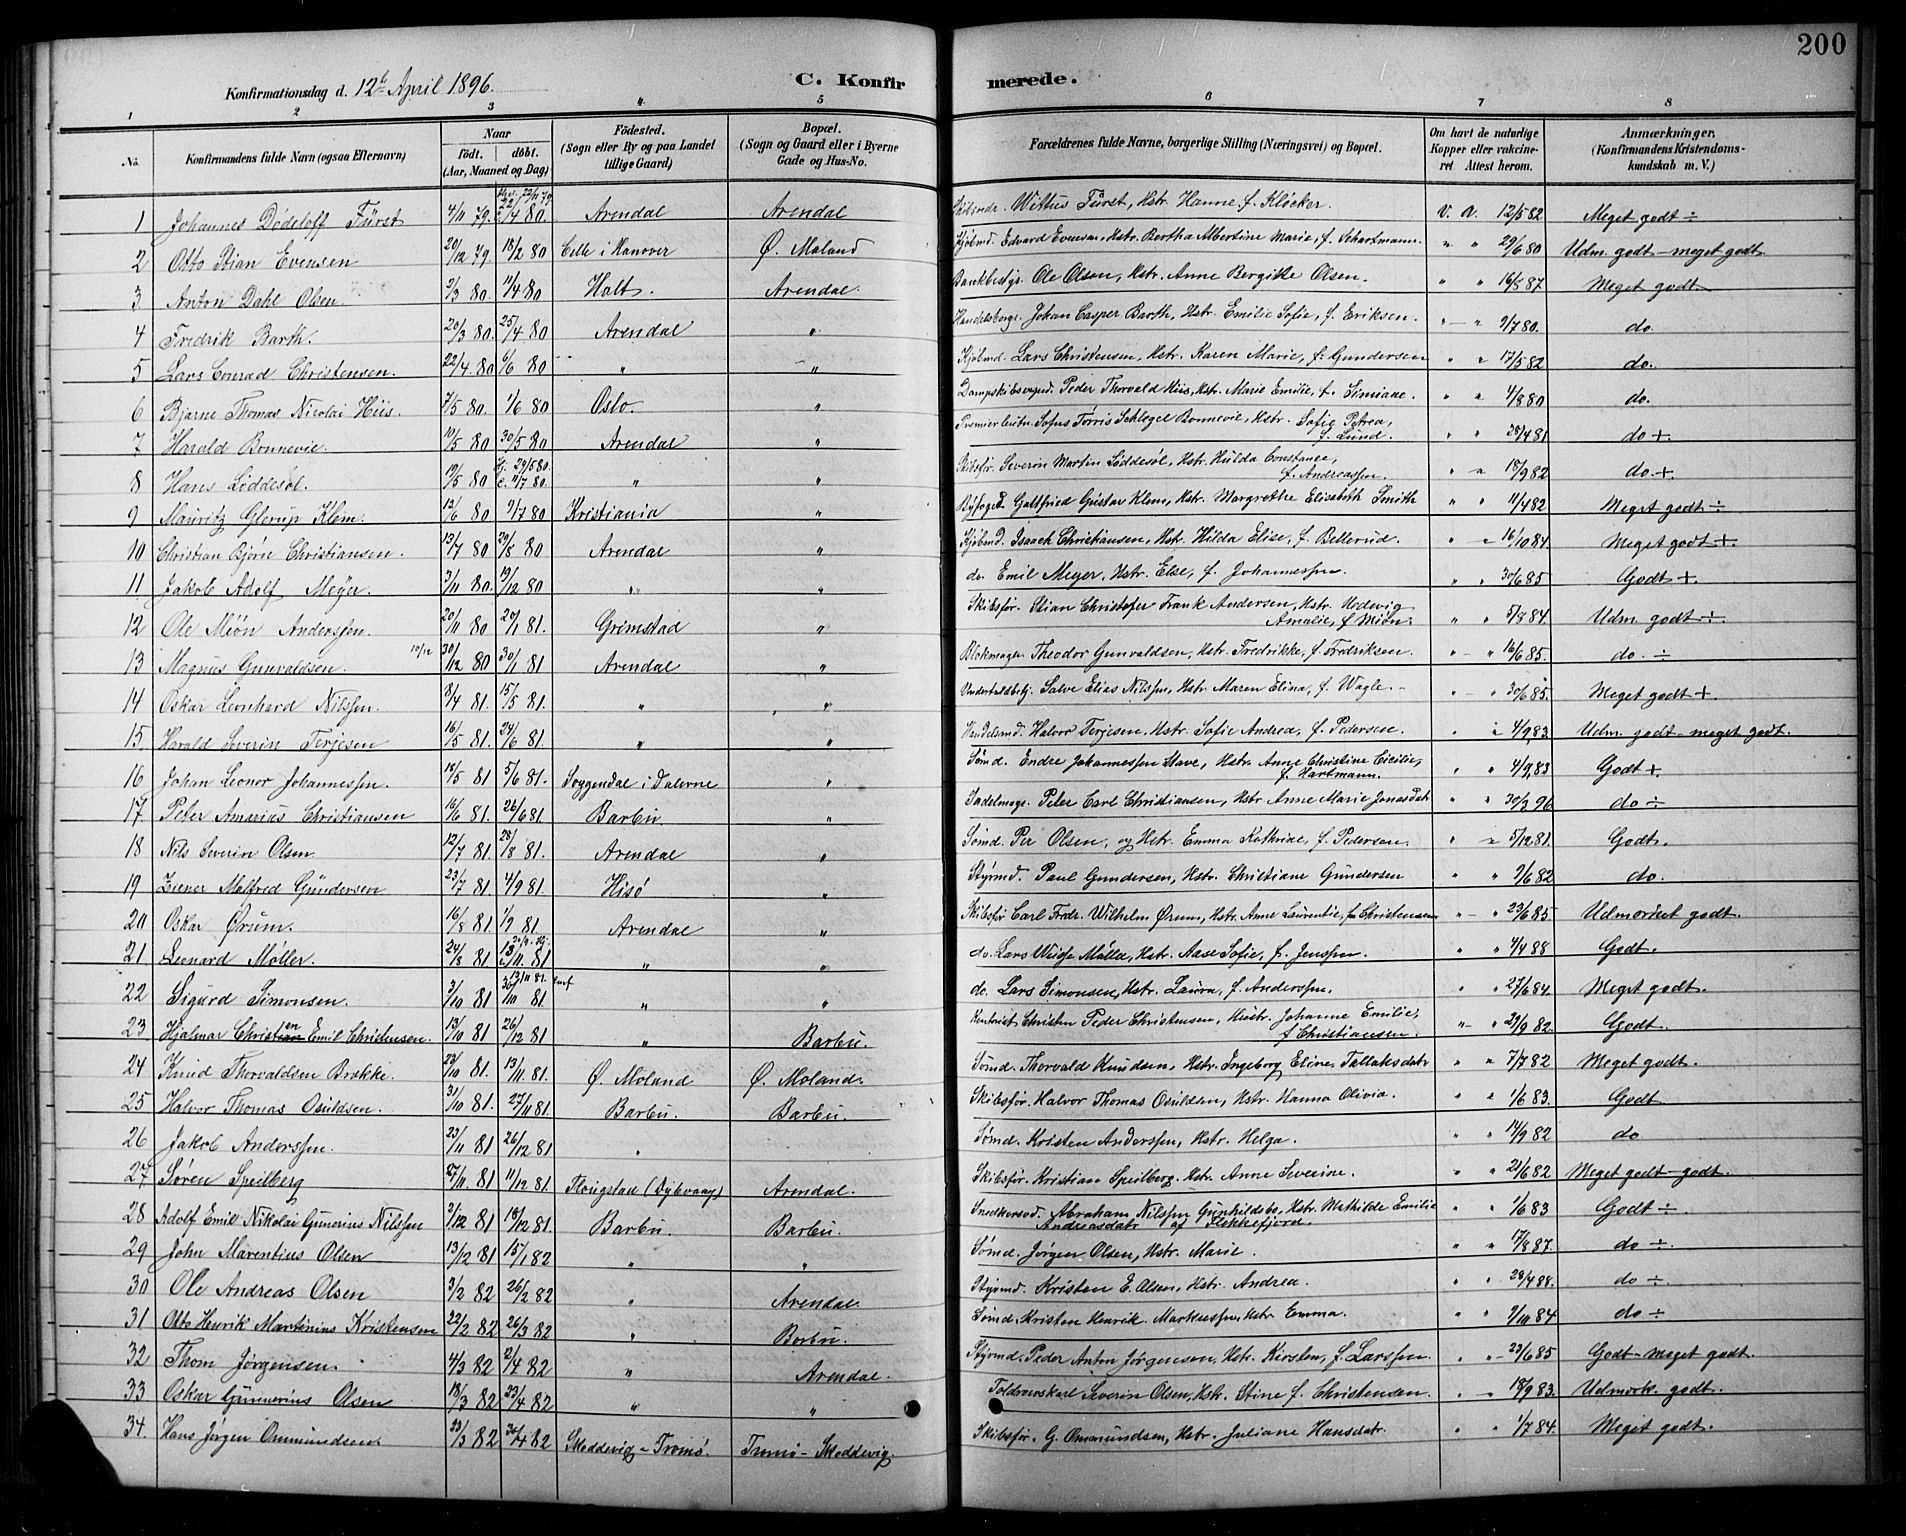 200
Konfirmationsdag d. 12te April 1896.
C. Konfirmerede.
1 2 3 4 5 6 7 8
No. Konfirmandens fulde Navn (ogsaa Efternavn) Naar født. døbt. (Aar, Maaned og Dag) Fødested. (Sogn eller By og paa Landet tillige Gaard) Bopæl. (Sogn og Gaard eller i Byerne Gade og Hus-No. Forældrenes fulde Navne, borgerlige Stilling (Næringsvei) og Bopæl. Om havt de naturlige Kopper eller vakcineret Attest herom. Anmærkninger. (Konfirmandens Kristendomskundskab m. V.)
1 Johannes Dödeloff Fürst 4/11 79. 22/11 79. /4 80. Arendal Arendal Wittus Fürst, Hstr. Hanne f. Klöcker. V. A. 12/5 82 Meget godt ÷
2 Otto Stian Evensen 20/12 79. 18/2 80 Celle i Hanover Ø. Moland Kjöbmd. Edvard Evensen, Hstr. Bertha Albertine Marie, f. Schartmann. " " 29/6 80 Udm. godt - meget godt.
3 Anton Dahl Olsen. 2/3 80. 11/4 80 Holt. Arendal. Bankbestyr. Ole Olsen, Hstr. Anne Bergithe Olsen. " " 16/8 87 Meget godt.
4 Fredrik Barth. 20/3 80. 25/4 80 Arendal " Handelsborg. Johan Casper Barth, Hstr. Emilie Sofie, f. Eriksen. " " 9/7 80. do.
5 Lars Conrad Christensen. 22/4 80 6/6 80 " " Kjöbmd. Lars Christensen, Hstr. Karen Marie, f. Gundersen " " 17/5 82 do.
6 Bjarne Thomas Nicolai Hiis. 7/5 80. 1/6 80 Oslo. " Dampskibsexped. Peder Thorvald Hiis, Hstr. Marie Emilie, f. Simiane. " " 4/8 80 do.
7 Harald Bonnevie. 10/5 80. 30/5 80 Arendal " Premierleutn. Sofus Torris Schlegel Bonnevie, Hstr. Sofie Petrea, f. Lund. " " 28/4 81 do +.
8 Hans Löddesöl. 19/5 80 Hj. 29/5 80. C. 11/7 80. " " Skibsför. Severin Martin Löddesöl, Hstr. Hulda Constance, f. Andreassen. " " 18/9 82 do. +
9 Mauritz Glerup Klem. 12/6 80 9/7 80 Kristiania " Byfoged Galtfried Gustav Klem, Hstr. Margrethe Elisabeth Smith " " 11/4 82 Meget godt ÷
10 Christian Bjørn Christiansen. 13/7 80 29/8 80 Arendal " Kjöbmd. Isaach Christiansen, Hstr. Hilda Elise, f. Bellerud. " " 16/10 84. Meget godt +.
11 Jakob Adolf Meyer. 3/11 80. 19/12 80 " " do. Emil Meyer, Hstr. Else, f. Johannessen. " " 30/6 85 Godt +.
12 Ole Miön Anderssen. 20/11 80 20/1 81. Grimstad " Skibsför. Stian Christofer Frank Andersen, Hstr. Hedevig Amalie, f. Miön. " " 5/8 84. Udm. godt ÷.
13 Magnus Gunvaldsen. 10/12 30/12 80 30/1 81 Arendal " Blokmager Theodor Gunvaldsen, Hstr. Fredrikke, f. Fredriksen. " " 16/6 85. do. ÷
14 Oskar Leonhard Nilssen. 8/4 81. 15/5 81. " " Salve Elias Nilssen, Hstr. Maren Elina, f. Wagle. " " 30/6 85. Meget godt +
15. Harald Severin Terjesen 16/5 81. 24/6 81. " " Handelsmd. Halvor Terjesen, Hstr. Sofie Andrea, f. Pedersen. " " 4/9 83. Udm. godt - meget godt.
16 Johan Leonor Johannessen. 18/5 81 5/6 81. Soggendal i Dalerne " Sömd. Endre Johannessen Stave, Hstr. Anne Christine Cicilie, f. Hartmann. " " 4/9 83 Godt +.
17 Peter Amarius Christiansen 16/6 81. 26/6 81 Barbu " Sadelmag. Peter Carl Christiansen, Hstr. Anne Marie Jonasdatr " " 30/3 96 do ÷
18 Nils Severin Olsen. 12/7 81. 28/8 81. Arendal " Sömd. Per Olsen, og Hstr. Emma Kathrine, f. Pedersen. " " 5/12 81. Godt.
19 Ziener Malfred Gundersen 23/7 81. 4/9 81. Hisö " Styrmd. Paul Gundersen, Hstr. Christiane Gundersen " " 9/6 82 do.
20 Oskar Ørum. 16/8 81. 1/9 81 Arendal " Skibsför Carl Fredr. Wilhelm Ørum, Hstr. Anne Laurentie, f. Christensen " " 23/6 85 Udmerket godt.
21 Leonard Møller. 24/8 81 13/11. 81 " " do. Lars Møller, Hstr. Aase Sofie, f. Jenssen. " " 4/4 88 Godt.
22 Sigurd Simonsen. 3/10 81 13/11 81. 30/10 81 " " do. Lars Simonsen, Hstr. Laura, f. Anderssen. " " 27/6 84. Meget godt.
23 Hjalmar Christen Emil Christensen. 13/10 81 26/12 81 " Barbu. Kontorist Christen Peder Christensen, Hustr. Johanne Emilie, f. Christiansen. " " 29/9 82. Godt.
24 Knud Thorvaldsen Brække. 23/10 81. 13/11. 81. Ø. Moland Ø. Moland. Sömd. Thorvald Knudsen, Hstr. Ingeborg Eline Tallaksdatr " " 7/7 82 Meget godt.
25 Halvor Thomas Osuldsen. 31/10 81. 27/11 81. Barbu. Barbu. Skibsför. Halvor Thomas Osulden, Hstr. Hanna Olivia. " " 1/6 83. Godt
26 Jakob Anderssen. 23/11 81 26/12 81 " Sömd. Kristen Anderssen, Hstr. Helga. " " 14/9 82 do
27 Sören Speilberg 27/11 81 11/12 81. (Dybvaag) Arendal. Skibsför. Kristian Speilberg. Hstr. Anne Severine. " " 21/6 82 Meget godt - godt.
28 Adolf Emil Nikolai Gunerius Nilssen 2/12 81 18/12 81. Barbu. Barbu. Snedkersvd. Abraham Nilssen Gunhildsbo, Hstr. Mathilde Emilie Andreasdatr af Flekkefjord. " " 1/6 83 Godt ÷.
29 John Marentius Olsen 13/12 81 15/1 82 " " Sömd. Jørgen Olsen, Hstr. Marie. " " 17/8 87. do ÷.
30 Ole Andreas Olsen 3/2 82 26/2 82 " Arendal. Styrmd. Kristen E. Olsen, Hstr. Andrea. " " 28/4 88. do ÷
31 Otto Henrik Martinius Kristensen 22/2 82 26/3 82 " Barbu. Sömd. Kristen Henrik Markussen, Hstr. Emma. " " 9/10 84 do ÷
32 Thom Jørgensen. 4/3 82 2/4 82 " Arendal. Styrmd. Peder Anton Jørgensen, Hstr. Kirsten, f. Larssen. " " 23/6 85 Godt - meget godt.
33 Oskar Gunnerius Olsen 18/3 82 23/4 82 " " Toldroerskarl Severin Olsen, Hstr. Stine f. Christensen. " " 18/9 83. Udmerk. godt.
34. Hans Jørgen Ommundsen. 23/3 82 30/4 82 Skoddevig - Tromö. Tromö - Skoddevig. Skibsför. G. Ommundsen, Hstr. Juliane Hansdatr. " " 1/7 84. Meget godt.